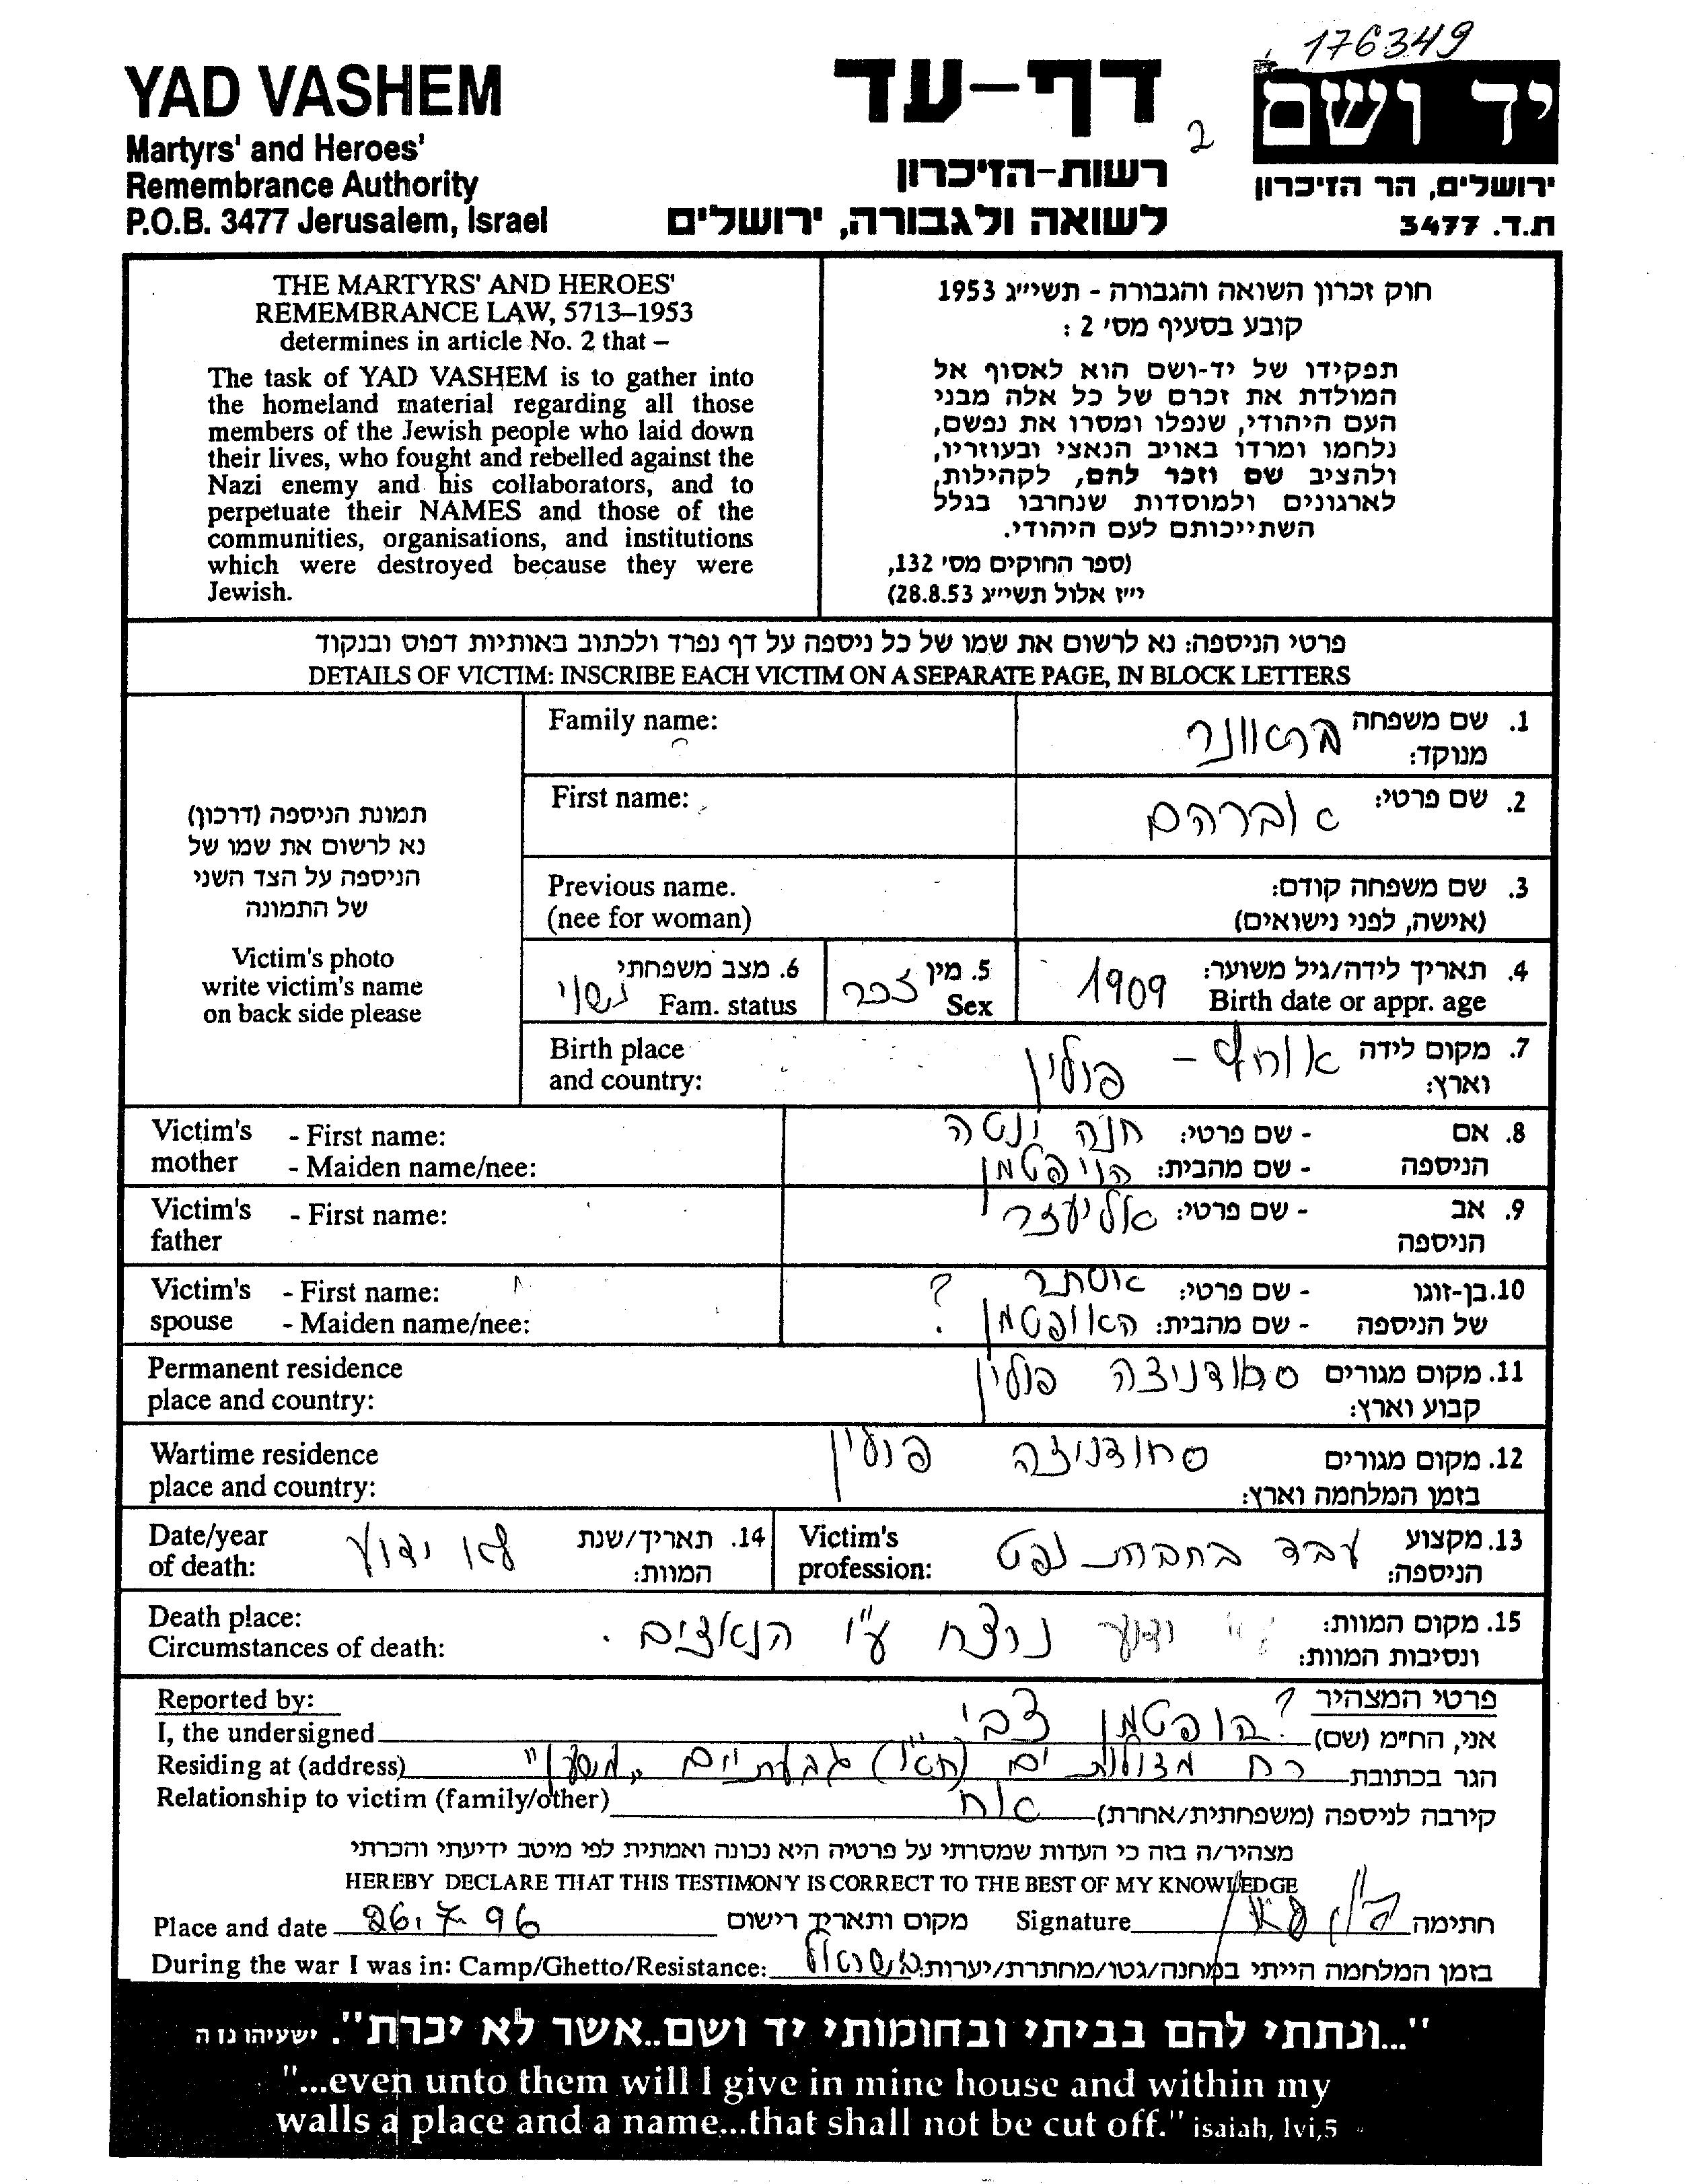 176349
YAD VASHEM
Martyrs' and Heroes'
Remembrance Authority
P.O.B. 3477 Jerusalem, Israel
דף-עד
2
רשות-הזיכרון
לשואה ולגבורה, ירושלים
יד ושם
ירושלים, הר הזיכרון
ת.ד. 3477
THE MARTYRS' AND HEROES'
REMEMBRANCE LAW, 5713–1953
determines in article No. 2 that –
The task of YAD VASHEM is to gather into
the homeland material regarding all those
members of the Jewish people who laid down
their lives, who fought and rebelled against the
Nazi enemy and his collaborators, and to
perpetuate their NAMES and those of the
communities, organisations, and institutions
which were destroyed because they were
Jewish.
חוק זכרון השואה והגבורה - תשי״ג 1953
קובע בסעיף מס׳ 2 :
תפקידו של יד-ושם הוא לאסוף אל
המולדת את זכרם של כל אלה מבני
העם היהודי, שנפלו ומסרו את נפשם,
נלחמו ומרדו באויב הנאצי ובעוזריו,
ולהציב שם וזכר להם, לקהילות,
לארגונים ולמוסדות שנחרבו בגלל
השתייכותם לעם היהודי.
(ספר החוקים מס׳ 132,
י״ז אלול תשי״ג 28.8.53)
פרטי הניספה: נא לרשום את שמו של כל ניספה על דף נפרד ולכתוב באותיות דפוס ובנקוד
DETAILS OF VICTIM: INSCRIBE EACH VICTIM ON A SEPARATE PAGE, IN BLOCK LETTERS
תמונת הניספה (דרכון)
נא לרשום את שמו של
הניספה על הצד השני
של התמונה
Victim's photo
write victim's name
on back side please
Family name:
1. שם משפחה בראוונר
מנוקד:
First name:
2. שם פרטי: אברהם
Previous name.
(nee for woman)
3. שם משפחה קודם:
(אישה, לפני נישואים)
4. תאריך לידה/גיל משוער:
Birth date or appr. age 1909
5. מין זכר
Sex
6. מצב משפחתי נשוי
Fam. status
Birth place
and country:
7. מקום לידה - פולין
וארץ:
Victim's - First name:
mother - Maiden name/nee:
8. אם - שם פרטי: חנה ינטה
הניספה - שם מהבית: הויפטמן
Victim's - First name:
father
9. אב - שם פרטי: אליעזר
הניספה
Victim's - First name:
spouse - Maiden name/nee:
10. בן-זוגו - שם פרטי: אסתר ?
של הניספה - שם מהבית: האופטמן
Permanent residence
place and country:
11. מקום מגורים סחודניצה פולין
קבוע וארץ:
Wartime residence
place and country:
12. מקום מגורים סחודניצה פולין
בזמן המלחמה וארץ:
Date/year
of death:
14. תאריך/שנת לא ידוע
המוות:
Victim's
profession:
13. מקצוע עבד בחברת נפט
הניספה:
Death place:
Circumstances of death:
15. מקום המוות: לא ידוע נרצח ע"י הנאצים.
ונסיבות המוות:
Reported by:
פרטי המצהיר
I, the undersigned
אני, הח״מ (שם) הופטמן צבי ?
Residing at (address)
הגר בכתובת רח מצולות ים גבעתיים
Relationship to victim (family/other)
קירבה לניספה (משפחתית/אחרת) אח
מצהיר/ה בזה כי העדות שמסרתי על פרטיה היא נכונה ואמתית לפי מיטב ידיעתי והכרתי
HEREBY DECLARE THAT THIS TESTIMONY IS CORRECT TO THE BEST OF MY KNOWLEDGE
Place and date 26.7.96 מקום ותאריך רישום Signature חתימה
During the war I was in: Camp/Ghetto/Resistance: בזמן המלחמה הייתי במחנה/גטו/מחתרת/יערות:
"...ונתתי להם בביתי ובחומותי יד ושם..אשר לא יכרת". ישעיהו נו ה
"...even unto them will I give in mine house and within my
walls a place and a name...that shall not be cut off." isaiah, lvi,5